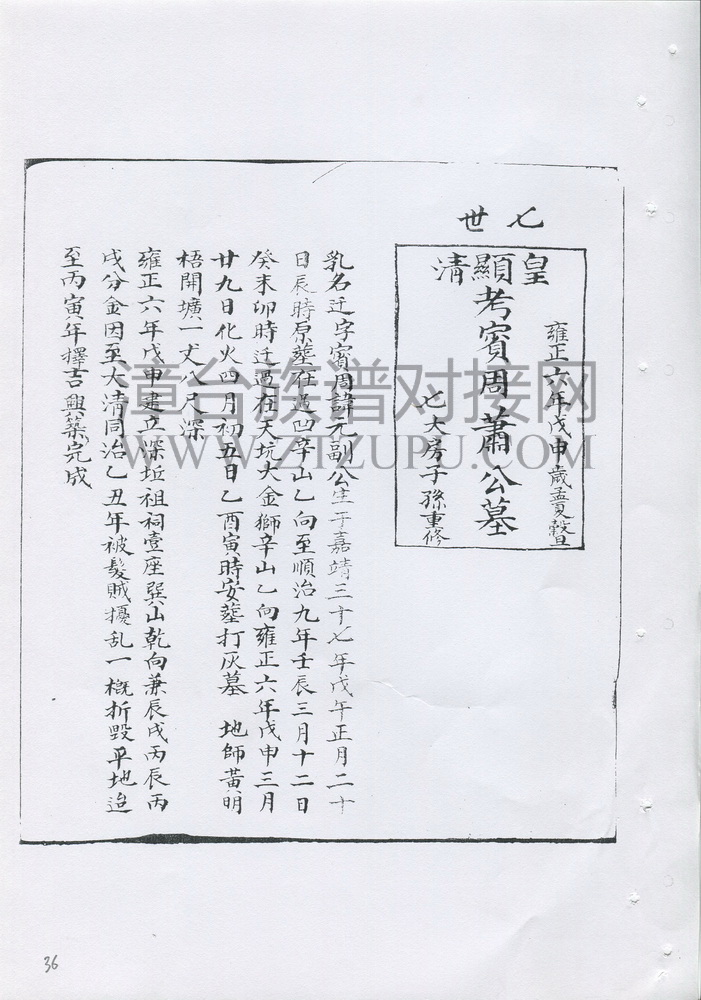 七世
雍正六年戊申歲孟夏豎
皇顯清
考賓周蕭公墓
七大房子孫重修
乳名迁字賓周諱元副公生于嘉靖三十七年戊午正月二十
日辰時原塟在過凹辛山乙向至順治九年壬辰三月十二日
癸未卯時迁過在天坑大金獅辛山乙向雍正六年戊申三月
廿九日化火四月初五日乙酉寅時安塟打灰墓 地師黃明
梧開壙一丈八尺深
雍正六年戊申建立深坵祖祠壹座巽山乾向兼辰戌丙辰丙
戌分金因至大清同治乙丑年被髮賊擾乱一概折毀平地迨
至丙寅年擇吉興築完成
章台族谱对接网
WWW.ZTZUPU.COM
36